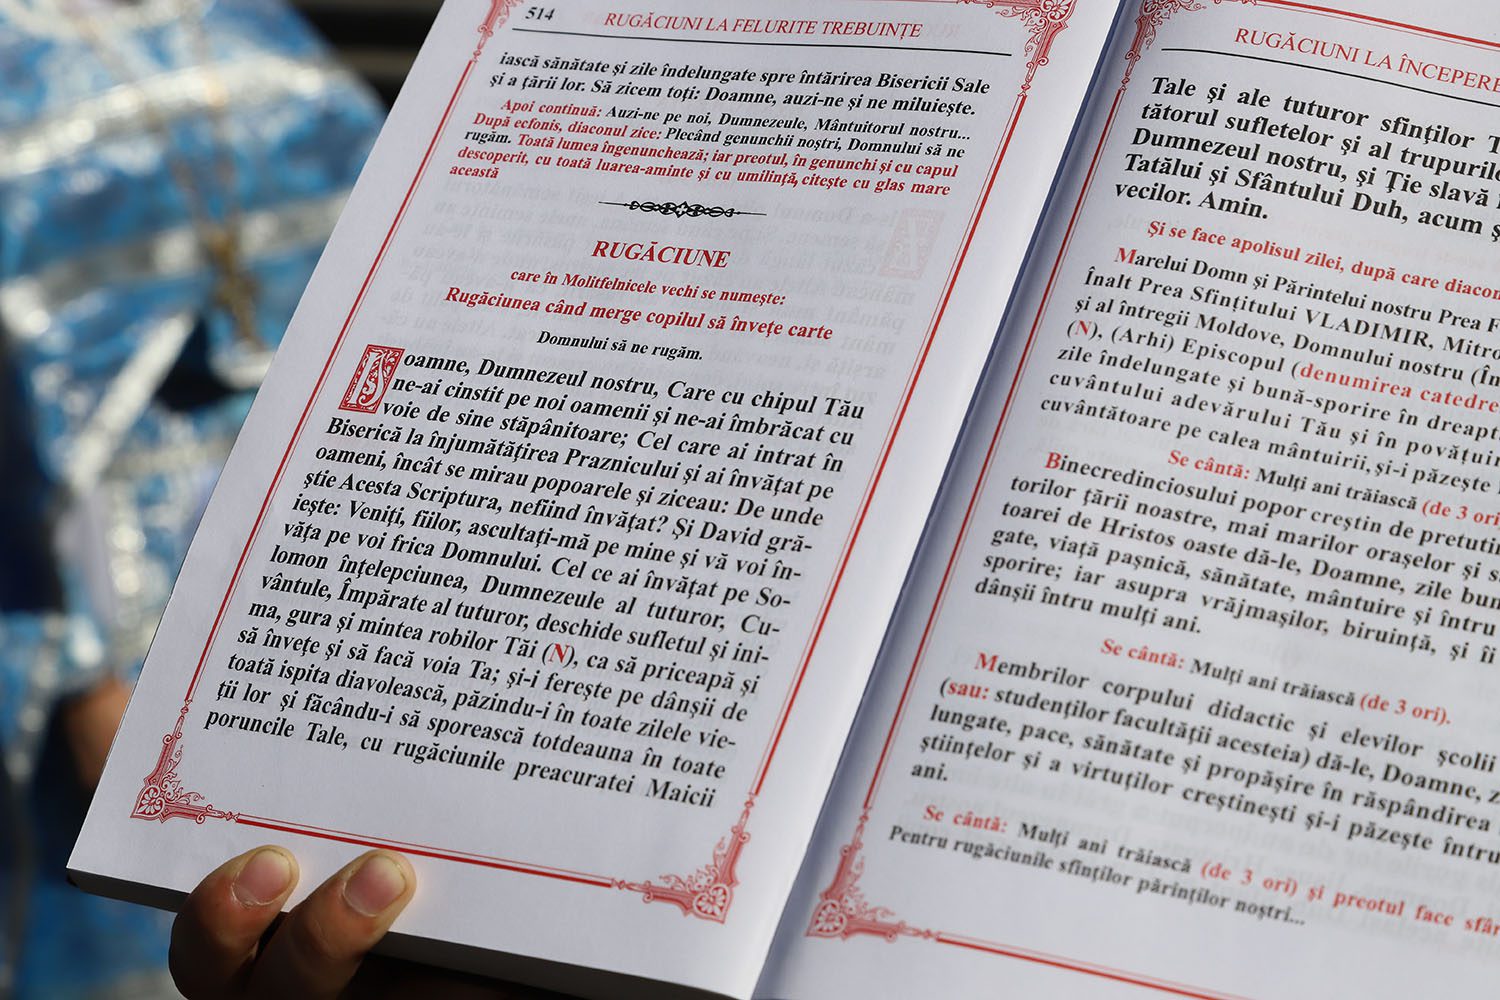 514 RUGĂCIUNI LA FELURITE TREBUINȚE
iască sănătate și zile îndelungate spre întărirea Bisericii Sale
și a țării lor. Să zicem toți: Doamne, auzi-ne și ne miluiește.
Apoi continuă: Auzi-ne pe noi, Dumnezeule, Mântuitorul nostru...
După ecfonis, diaconul zice: Plecând genunchii noștri, Domnului să ne
rugăm. Toată lumea îngenunchează; iar preotul, în genunchi și cu capul
descoperit, cu toată luarea-aminte și cu umilință, citește cu glas mare
această
RUGĂCIUNE
care în Molitfelnicele vechi se numește:
Rugăciunea când merge copilul să învețe carte
Domnului să ne rugăm.
Doamne, Dumnezeul nostru, Care cu chipul Tău
ne-ai cinstit pe noi oamenii și ne-ai îmbrăcat cu
voie de sine stăpânitoare; Cel care ai intrat în
Biserică la înjumătățirea Praznicului și ai învățat pe
oameni, încât se mirau popoarele și ziceau: De unde
știe Acesta Scriptura, nefiind învățat? Și David gră-
iește: Veniți, fiilor, ascultați-mă pe mine și vă voi în-
văța pe voi frica Domnului. Cel ce ai învățat pe So-
lomon înțelepciunea, Dumnezeule al tuturor, Cu-
vântule, Împărate al tuturor, deschide sufletul și ini-
ma, gura și mintea robilor Tăi (N), ca să priceapă și
să învețe și să facă voia Ta; și-i ferește pe dânșii de
toată ispita diavolească, păzindu-i în toate zilele vie-
ții lor și făcându-i să sporească totdeauna în toate
poruncile Tale, cu rugăciunile preacuratei Maicii
RUGĂCIUNI LA ÎNCEPERE
Tale și ale tuturor sfinților T
tătorul sufletelor și al trupurile
Dumnezeul nostru, și Ție slavă
Tatălui și Sfântului Duh, acum ș
vecilor. Amin.
Și se face apolisul zilei, după care diacon
Marelui Domn și Părintelui nostru Prea F
Înalt Prea Sfințitului VLADIMIR, Mitro
și al întregii Moldove, Domnului nostru (În
(N), (Arhi) Episcopul (denumirea catedre
zile îndelungate și bună-sporire în dreapt
cuvântului adevărului Tău și în povățuir
cuvântătoare pe calea mântuirii, și-i păzește
Se cântă: Mulți ani trăiască (de 3 ori
Binecredinciosului popor creștin de pretutin
torilor țării noastre, mai marilor orașelor și s
toarei de Hristos oaste dă-le, Doamne, zile bun
gate, viață pașnică, sănătate, mântuire și întru
sporire; iar asupra vrăjmașilor, biruință, și îi
dânșii întru mulți ani.
Se cântă: Mulți ani trăiască (de 3 ori).
Membrilor corpului didactic și elevilor școlii
(sau: studenților facultății acesteia) dă-le, Doamne, z
lungate, pace, sănătate și propășire în răspândirea
științelor și a virtuților creștinești și-i păzește întru
ani.
Se cântă: Mulți ani trăiască (de 3 ori) și preotul face sfâr
Pentru rugăciunile sfinților părinților noștri...